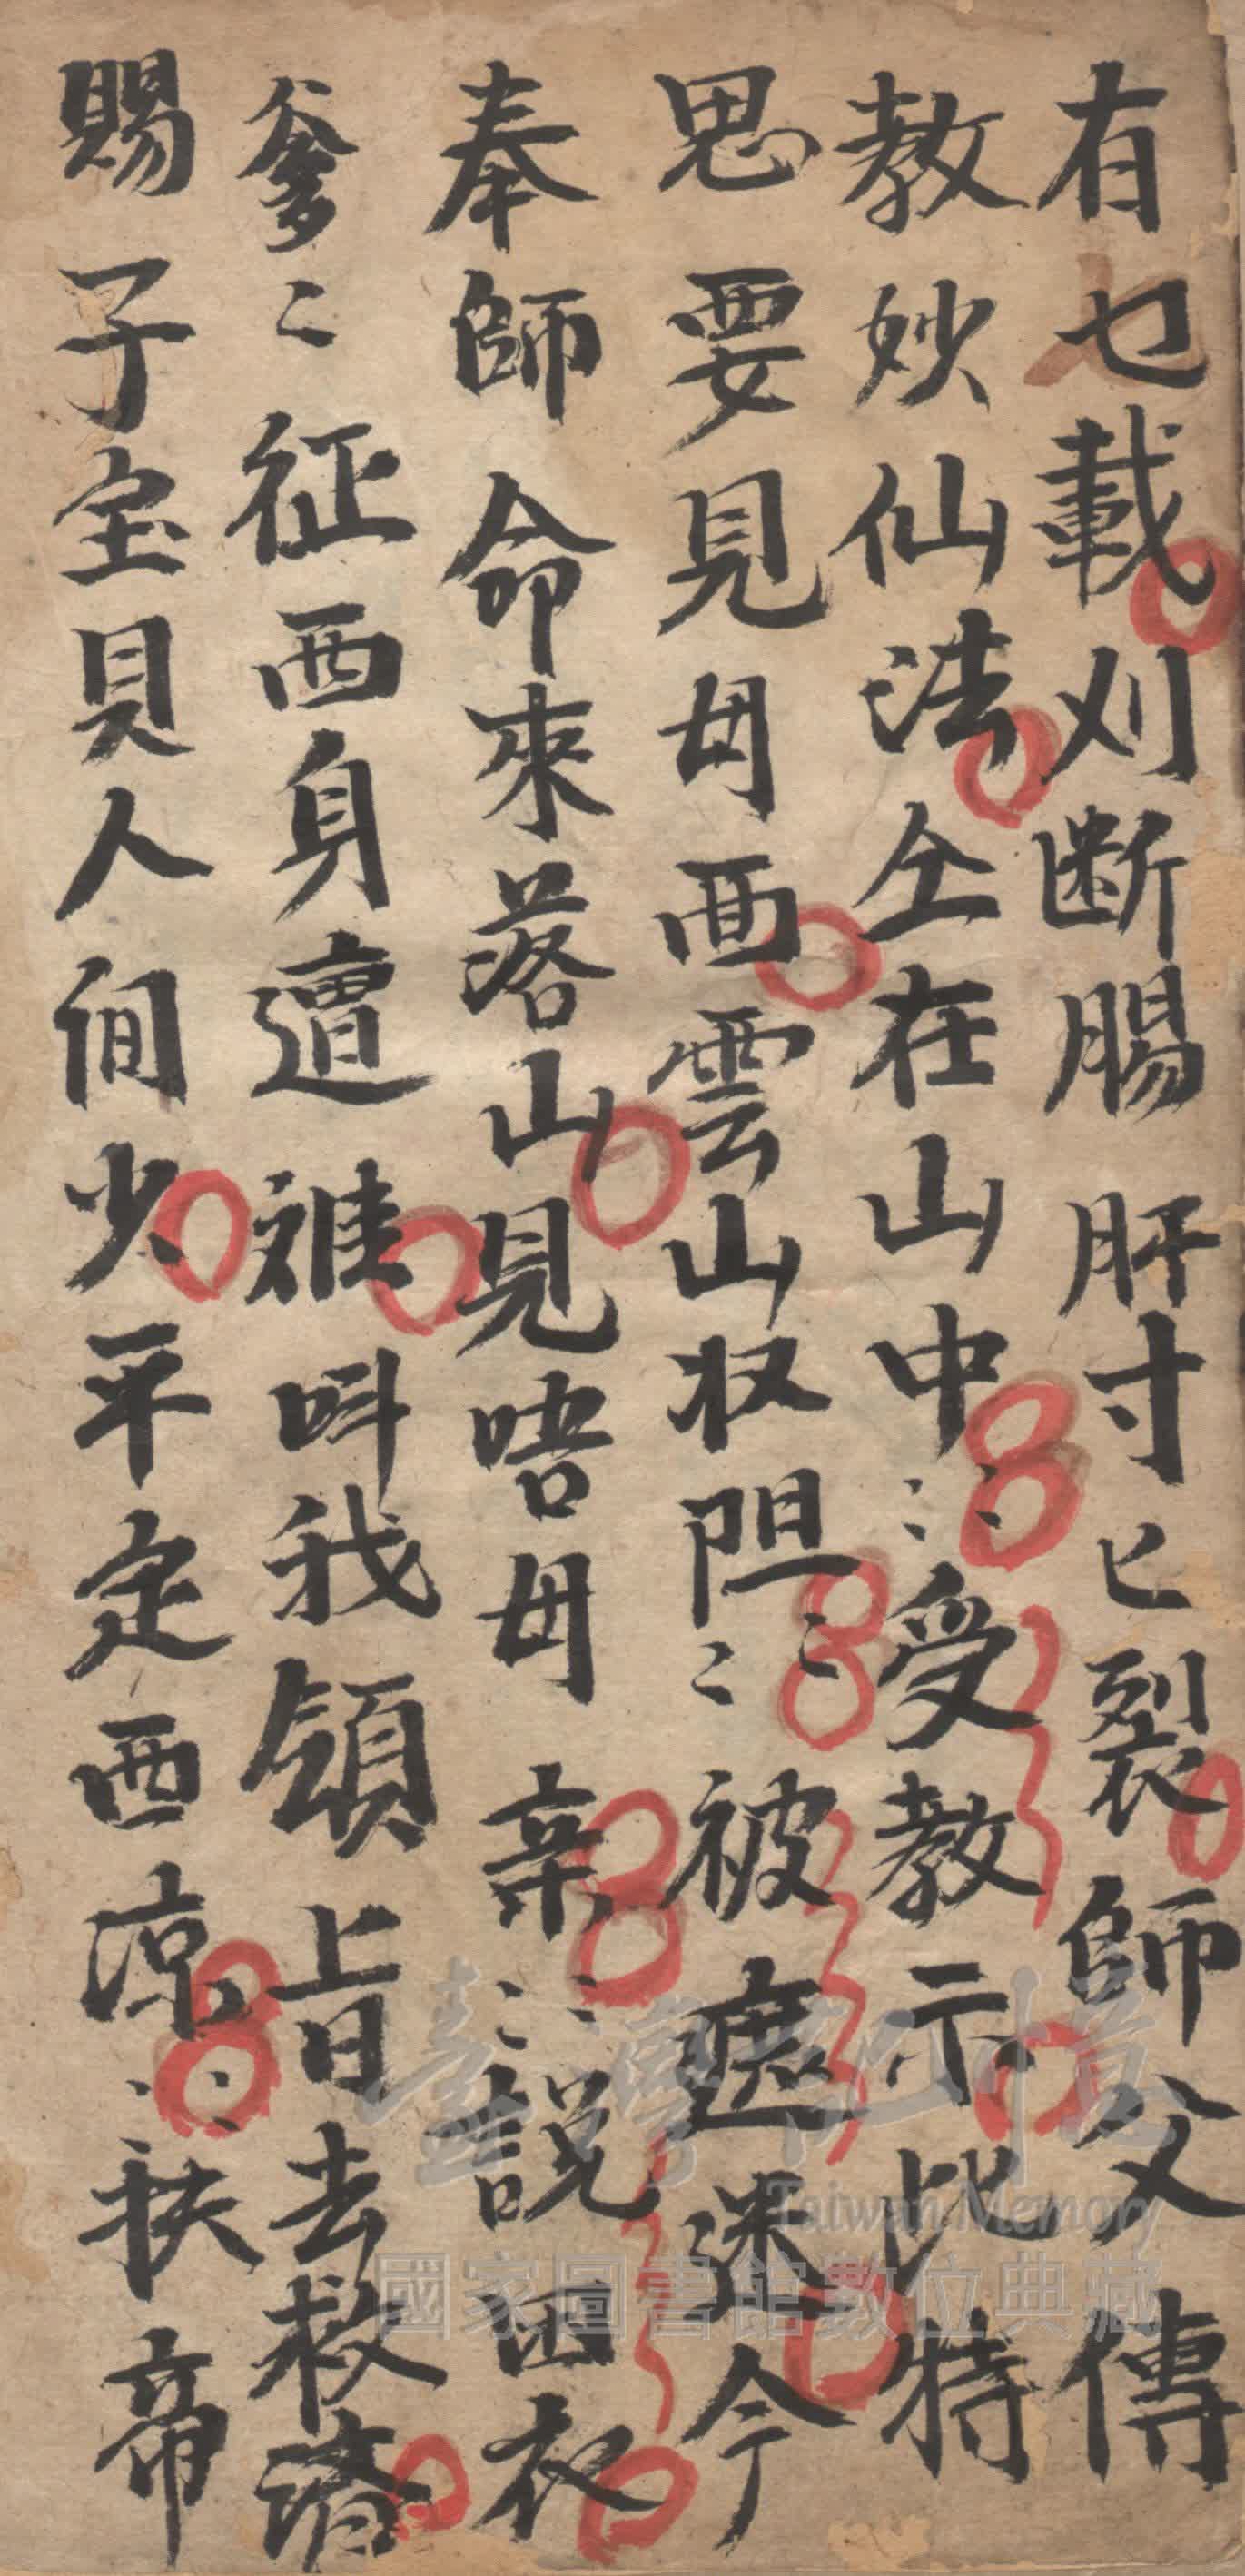 有乜載刈断腸肝寸匕裂師父傳
教妙仙法仝在山中⺀⺀受教示比特
思要見母面雲山权阻⺀⺀被遮迷今
奉師命來落山見唔母亲⺀⺀說因衣
爹⺀征西身遭禍叫我領上旨去救済
賜子宝貝人間少平定西凉⺀⺀扶帝
臺灣記憶
Taiwan Memory
國家圖書館數位典藏